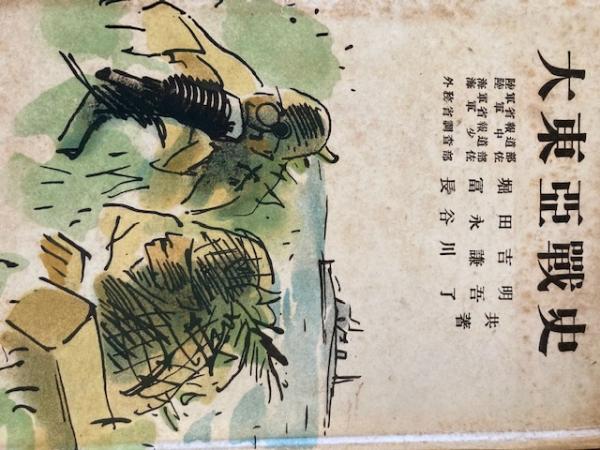 大東亞戰史
陸軍省報道部
陸軍中佐 堀田吉明
海軍省報道部
海軍少佐 富永謙吾
外務省調査部 長谷川了
共著